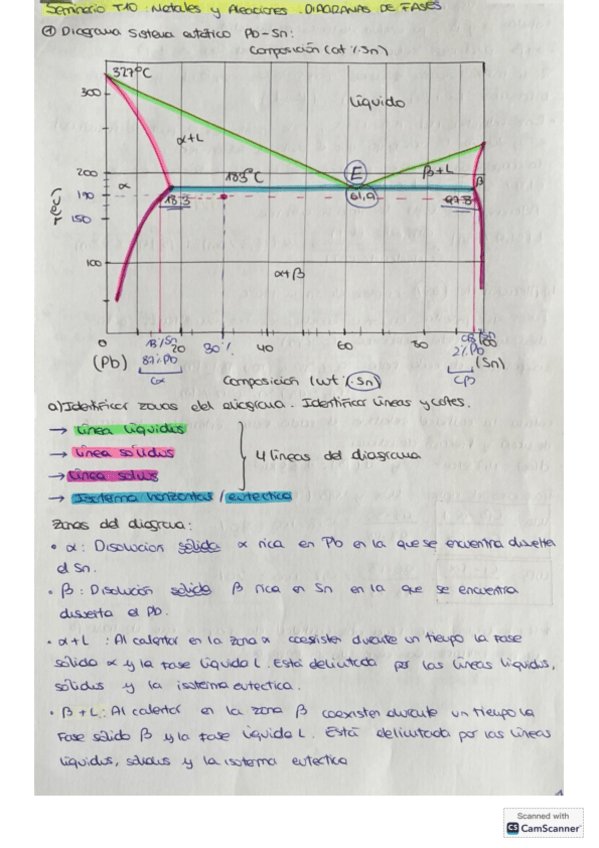 Seminario T10: Metales y Aleaciones. DIAGRAMAS DE FASES.
① Diagrama sistema eutético Pb-Sn:
Composición (at % Sn)
327ºC
300
Líquido
α+L
200
183ºC
E
β+L
α
β
190
18.3
61,9
97.8
150
100
α+β
0
20
30%
40
60
80
100
(Pb)
87% Pb
2% Pb
(Sn)
Cα
Composición (wt % Sn)
Cβ
a) Identificar zonas del diagrama. Identificar líneas y cortes.
→ Línea líquidus
→ Línea sólidus
→ Línea solvus
→ Isoterma horizontal / eutéctica
4 líneas del diagrama
Zonas del diagrama:
• α: Disolución sólida α rica en Pb en la que se encuentra disuelta
el Sn.
• β: Disolución sólida β rica en Sn en la que se encuentra
disuelta el Pb.
• α+L : Al calentar en la zona α coexisten durante un tiempo la fase
sólida α y la fase líquida L. Está delimitada por las líneas líquidus,
sólidus y la isoterma eutectica.
• β+L: Al calentar en la zona β coexisten durante un tiempo la
Fase sólido β y la fase líquida L. Está delimitada por las líneas
líquidus, sólidus y la isoterma eutectica
1
Scanned with
CS CamScanner